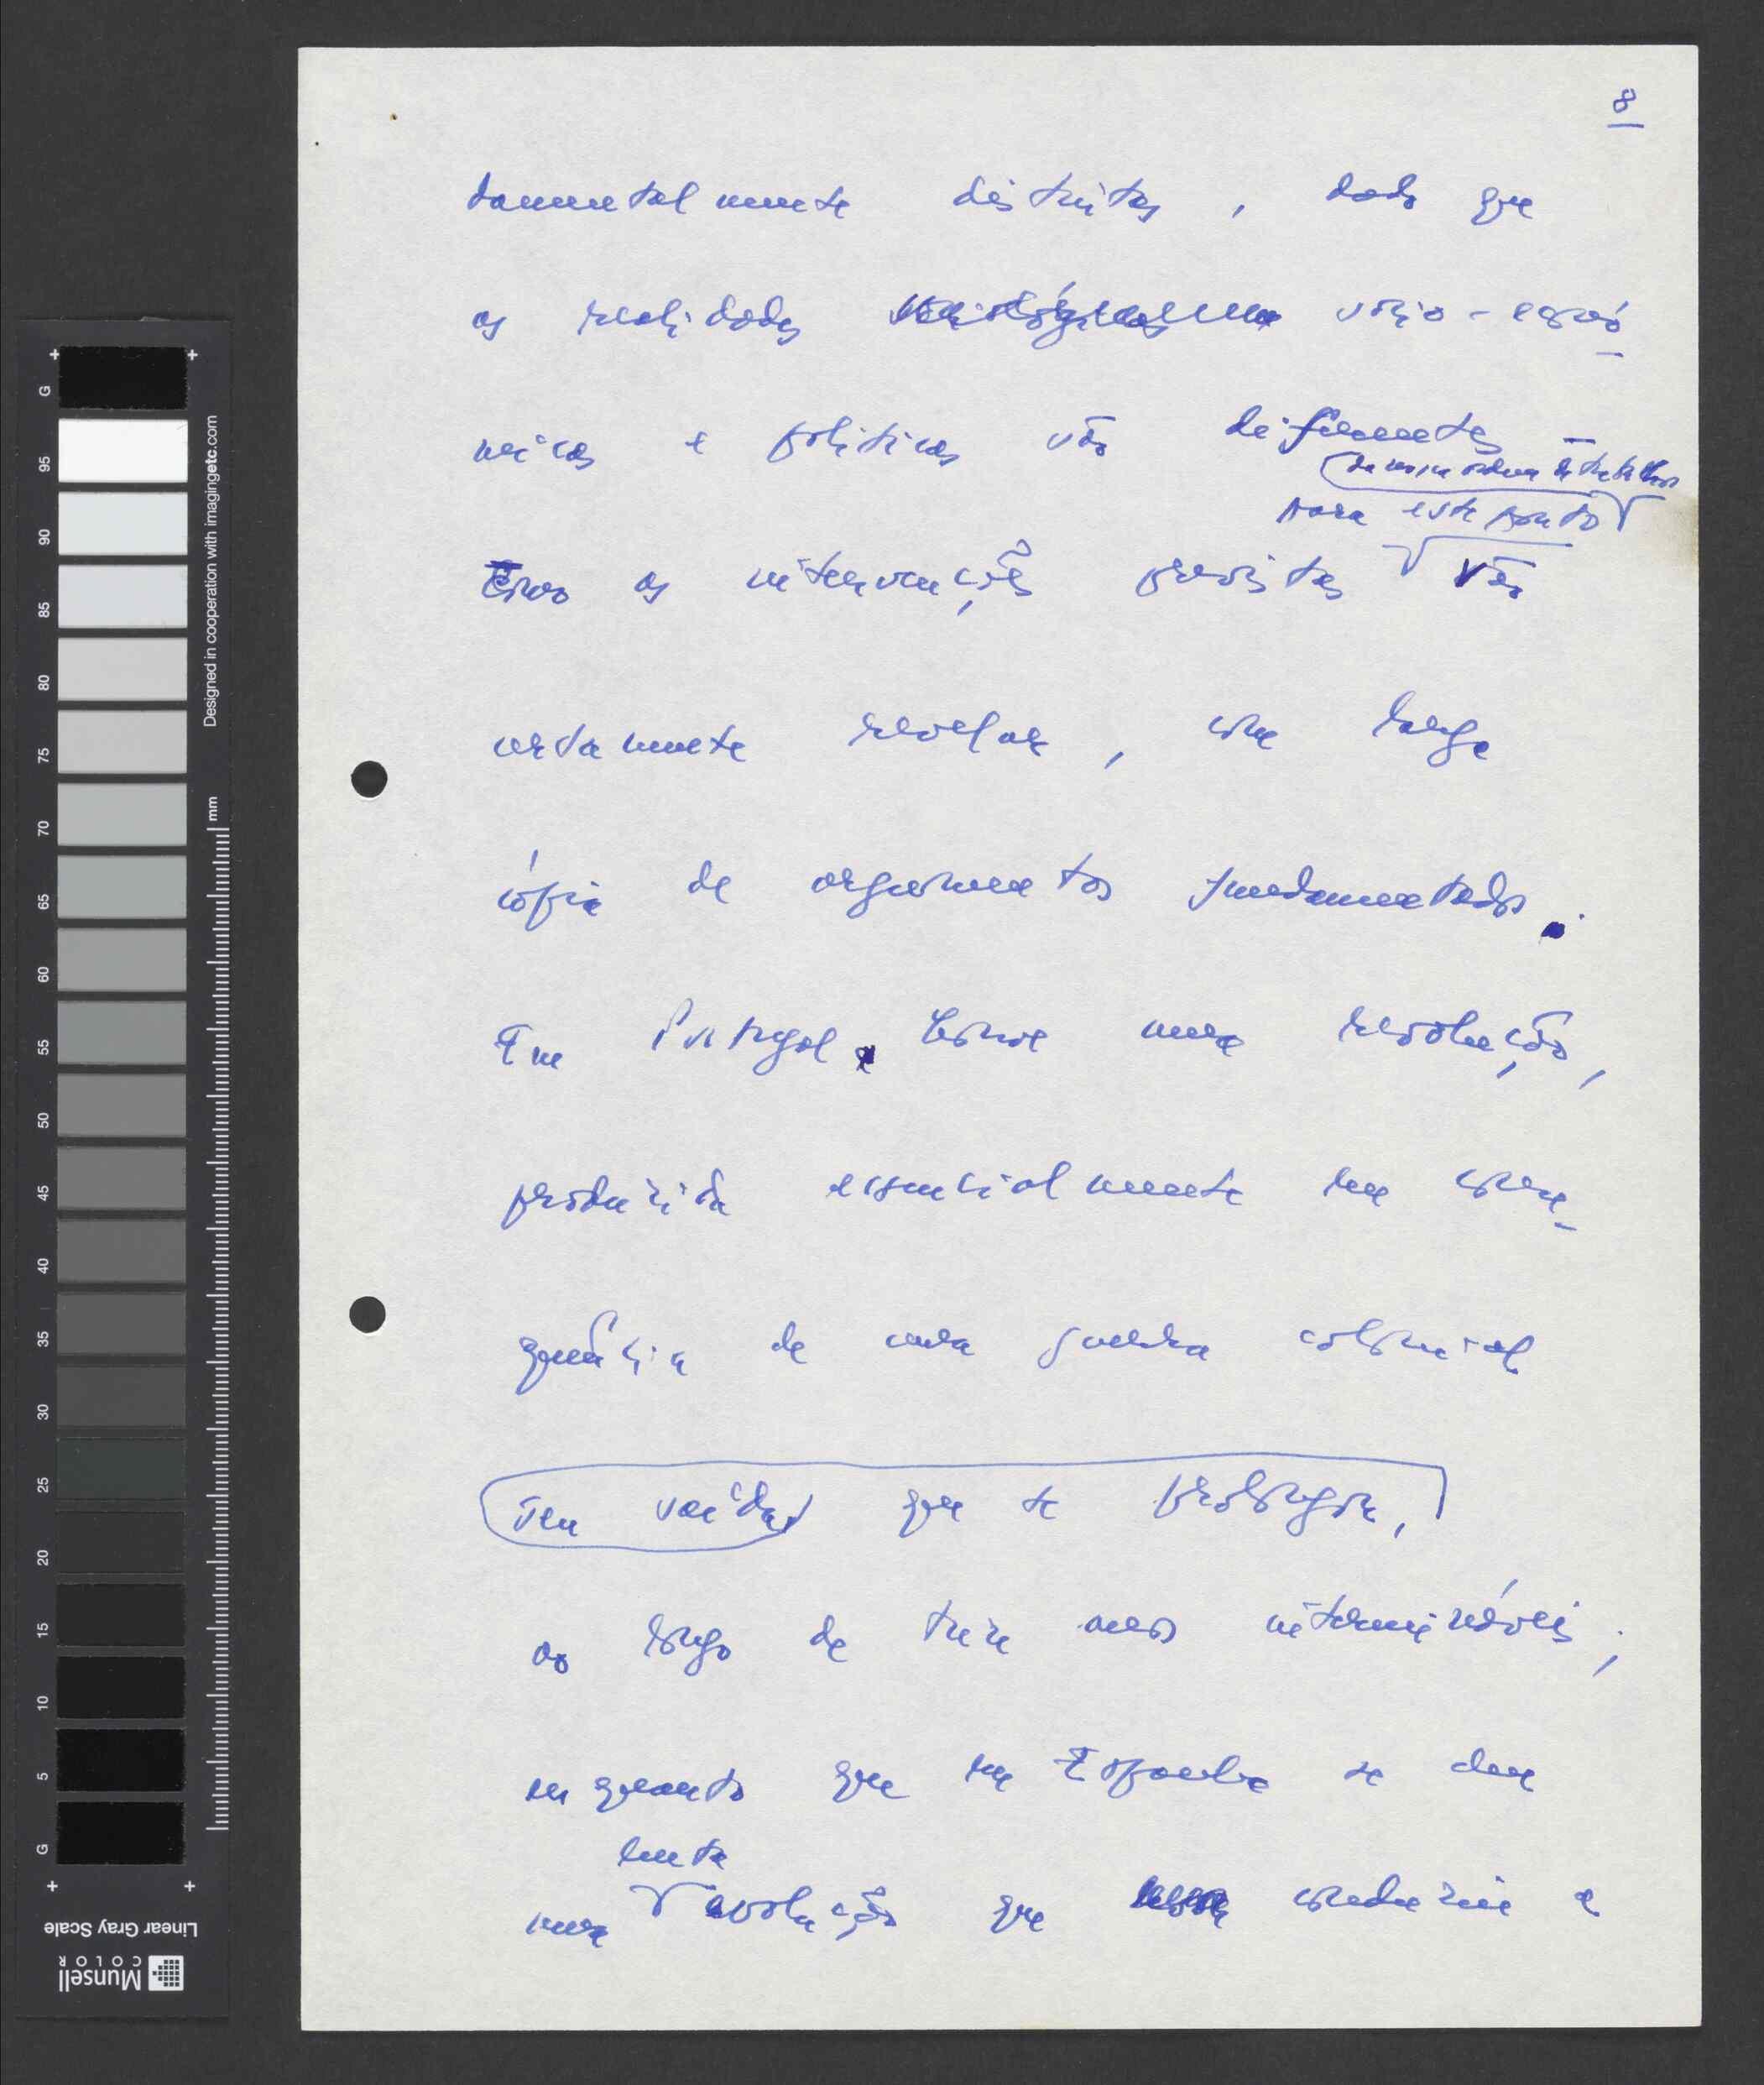 8
damentalmente distintas, dado que
as realidades sócio-econó-
micas e políticas são diferentes –
da nossa ordem de trabalhos
para este ponto
Como as intervenções previstas vão
certamente revelar, com larga
cópia de argumentos fundamentados.
Em Portugal houve uma revolução,
produzida essencialmente em conse-
quência de uma guerra colonial
sem saída, que se prolongou,
ao longo de treze anos intermináveis;
enquanto que em Espanha se deu
lenta
uma evolução que conduziu a
G 95 90 85 80 75 70 65 60 55 50 45 40 35 30 25 20 15 10 5 G
Designed in cooperation with imagingetc.com
mm
Linear Gray Scale
Munsell
COLOR